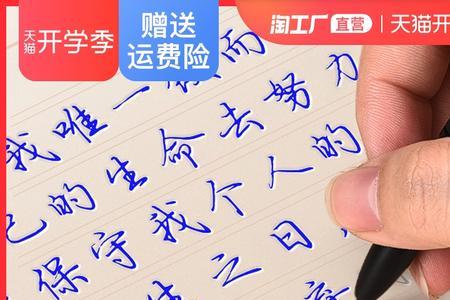 天猫 开学季
赠送
运费险
淘工厂 直营 天猫开
我唯一 而
己的生命去努力
保守我个人的
之日